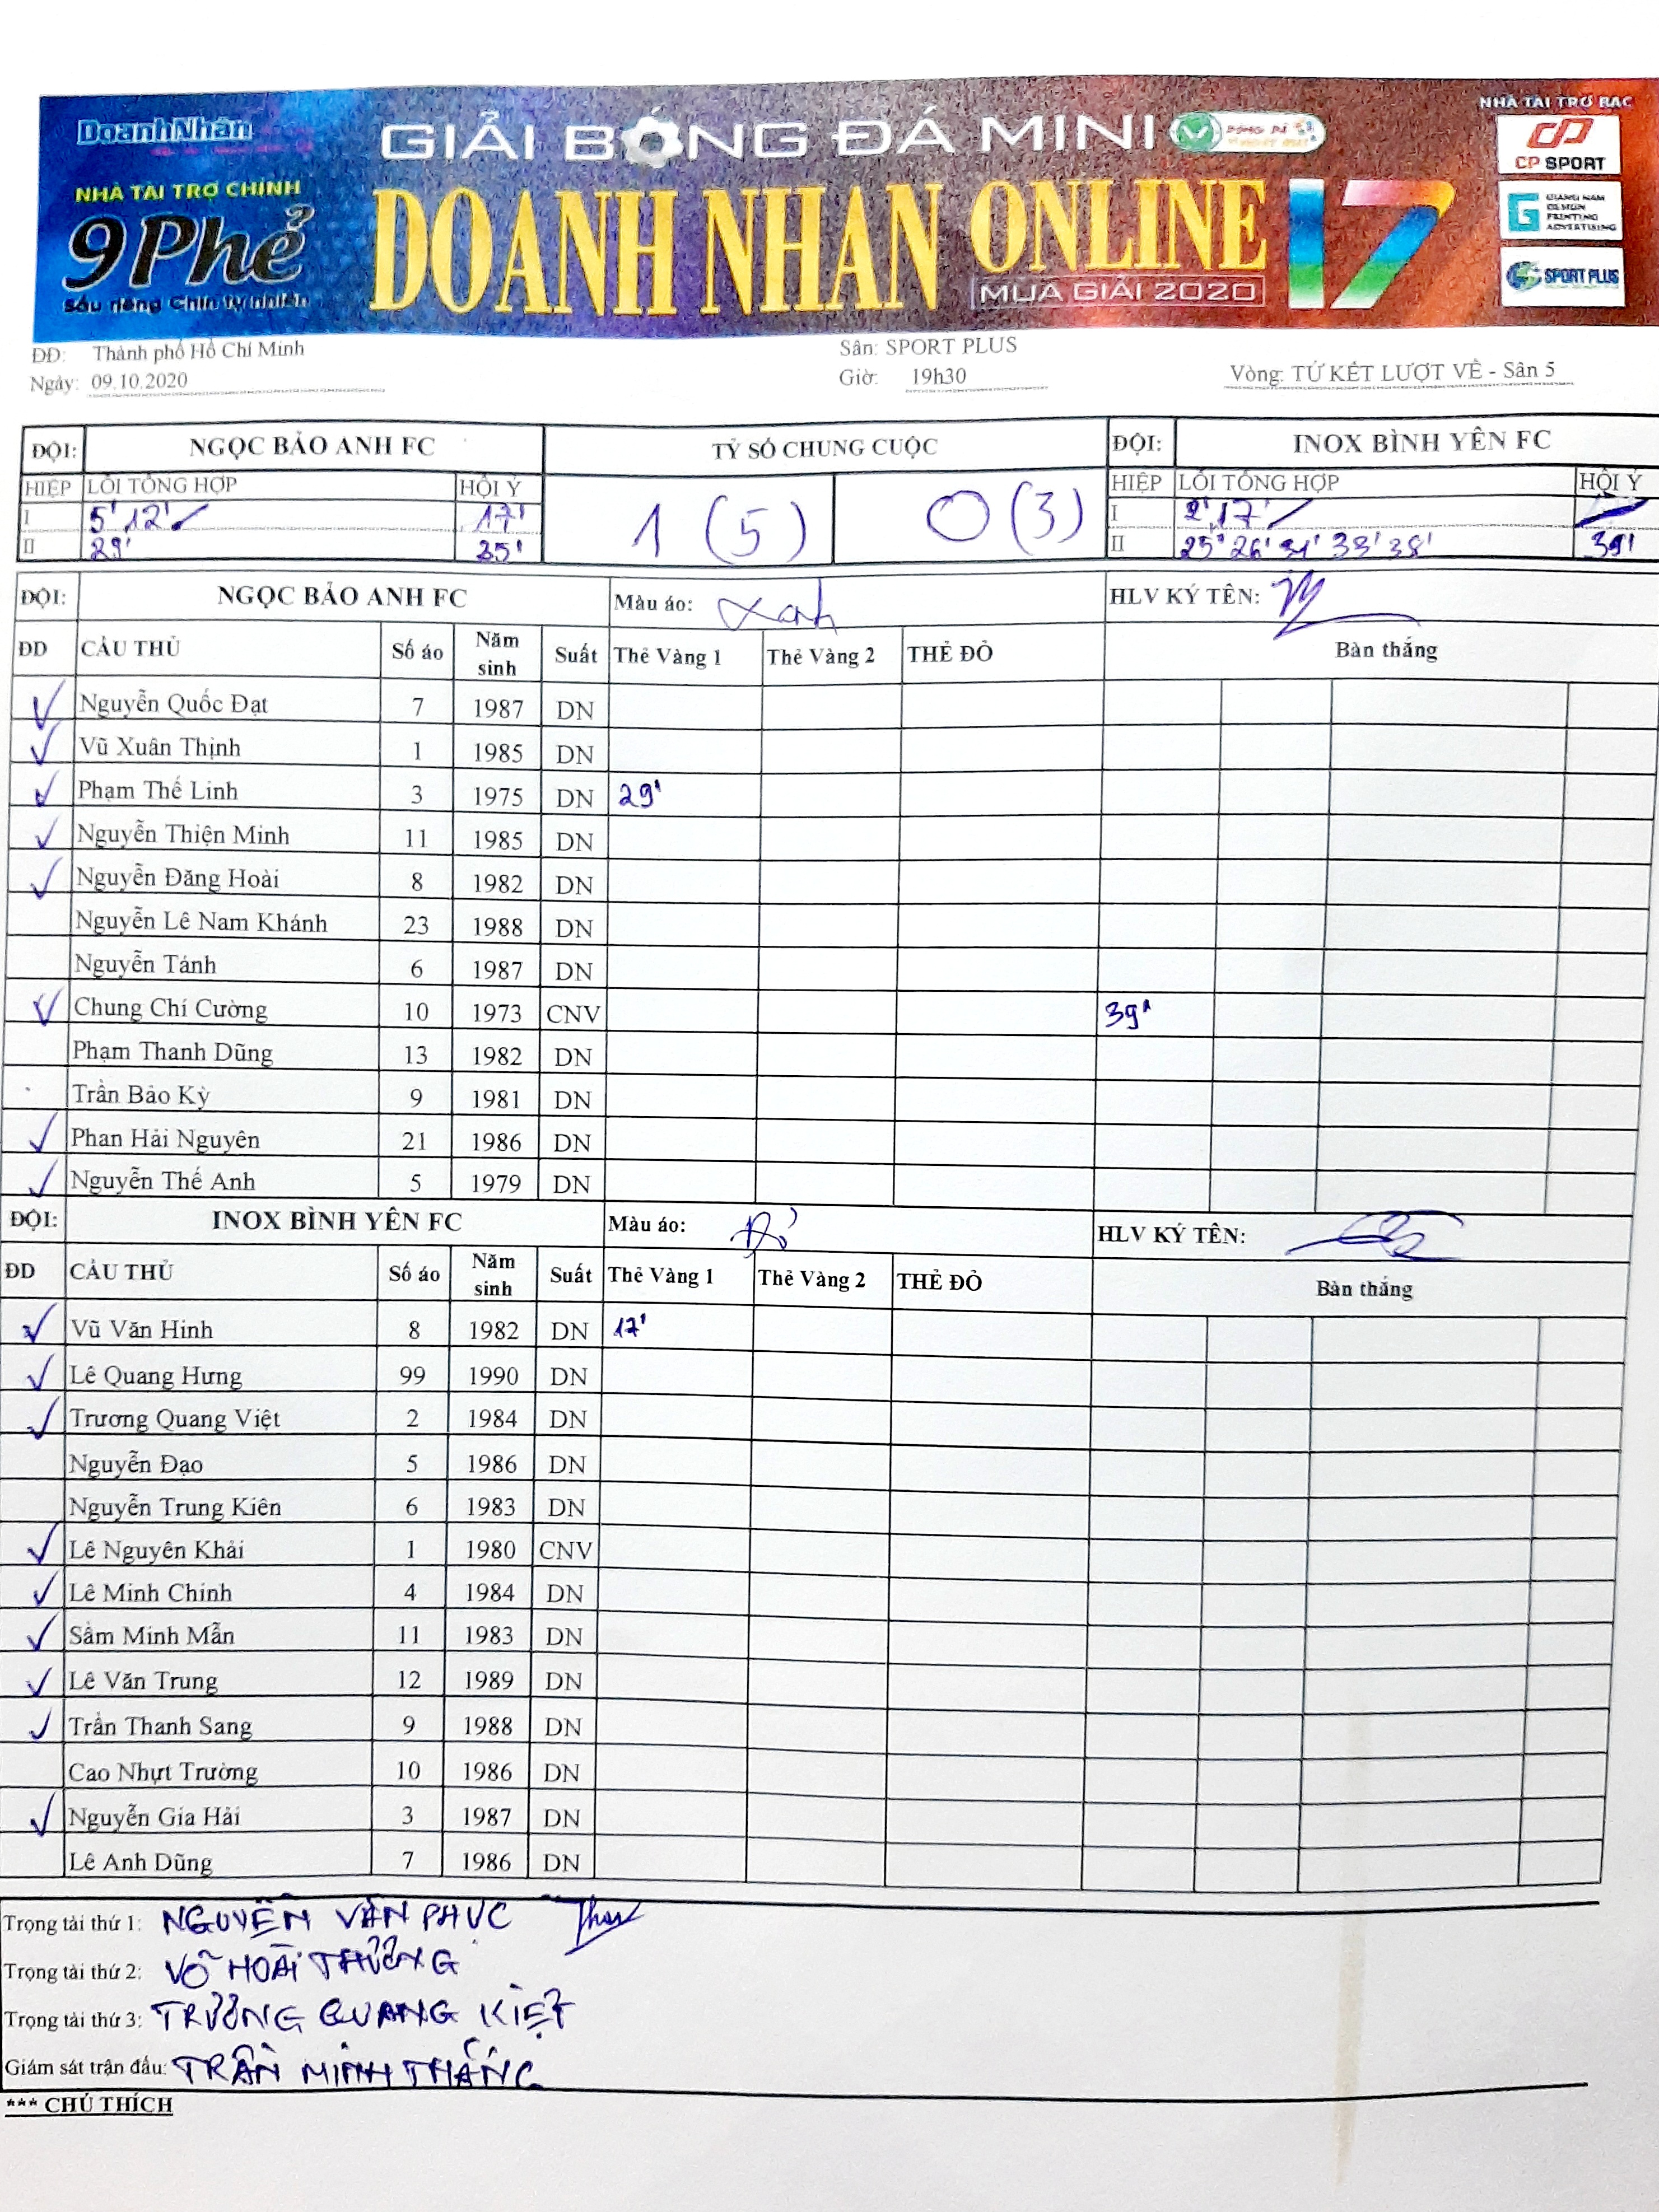 DoanhNhân
GIẢI BÓNG ĐÁ MINI
NHÀ TÀI TRỢ BẠC
CP SPORT
NHÀ TÀI TRỢ CHÍNH
9Phẻ
Sầu riêng Chín tự nhiên
DOANH NHAN ONLINE 17
MÙA GIẢI 2020
GIANG NAM
DESIGN
PRINTING
ADVERTISING
SPORT PLUS
ĐĐ: Thành phố Hồ Chí Minh Sân: SPORT PLUS
Ngày: 09.10.2020 Giờ: 19h30 Vòng: TỨ KẾT LƯỢT VỀ - Sân 5
ĐỘI: NGỌC BẢO ANH FC TỶ SỐ CHUNG CUỘC ĐỘI: INOX BÌNH YÊN FC
HIỆP LỖI TỔNG HỢP HỘI Ý HIỆP LỖI TỔNG HỢP HỘI Ý
I 5' 12' 17' 1 (5) 0 (3) I 2' 17'
II 29' 35' II 25' 26' 31' 33' 38' 39'
ĐỘI: NGỌC BẢO ANH FC Màu áo: Xanh HLV KÝ TÊN:
ĐD CẦU THỦ Số áo Năm sinh Suất Thẻ Vàng 1 Thẻ Vàng 2 THẺ ĐỎ Bàn thắng
Nguyễn Quốc Đạt 7 1987 DN
Vũ Xuân Thịnh 1 1985 DN
Phạm Thế Linh 3 1975 DN 29'
Nguyễn Thiện Minh 11 1985 DN
Nguyễn Đăng Hoài 8 1982 DN
Nguyễn Lê Nam Khánh 23 1988 DN
Nguyễn Tánh 6 1987 DN
Chung Chí Cường 10 1973 CNV 39'
Phạm Thanh Dũng 13 1982 DN
Trần Bảo Kỳ 9 1981 DN
Phan Hải Nguyên 21 1986 DN
Nguyễn Thế Anh 5 1979 DN
ĐỘI: INOX BÌNH YÊN FC Màu áo: Đỏ HLV KÝ TÊN:
ĐD CẦU THỦ Số áo Năm sinh Suất Thẻ Vàng 1 Thẻ Vàng 2 THẺ ĐỎ Bàn thắng
Vũ Văn Hinh 8 1982 DN 17'
Lê Quang Hưng 99 1990 DN
Trương Quang Việt 2 1984 DN
Nguyễn Đạo 5 1986 DN
Nguyễn Trung Kiên 6 1983 DN
Lê Nguyên Khải 1 1980 CNV
Lê Minh Chính 4 1984 DN
Sầm Minh Mẫn 11 1983 DN
Lê Văn Trung 12 1989 DN
Trần Thanh Sang 9 1988 DN
Cao Nhựt Trường 10 1986 DN
Nguyễn Gia Hải 3 1987 DN
Lê Anh Dũng 7 1986 DN
Trọng tài thứ 1: NGUYỄN VĂN PHỤC
Trọng tài thứ 2: VÕ HOÀI THƯƠNG
Trọng tài thứ 3: TRƯƠNG QUANG KIỆT
Giám sát trận đấu: TRẦN MINH THẮNG
*** CHÚ THÍCH